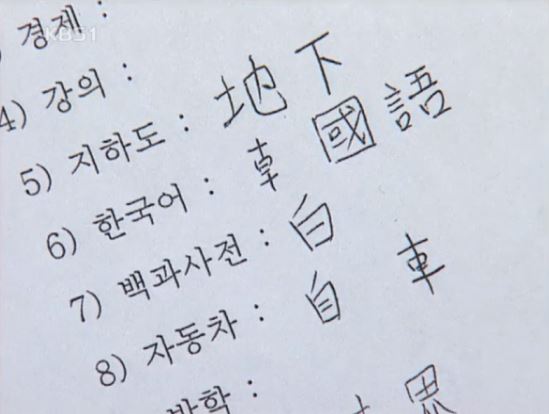 경제 :
KBS1
4) 강의 :
5) 지하도 : 地下
6) 한국어 : 卓國語
7) 백과사전 : 白
8) 자동차 : 自 車
방학 :